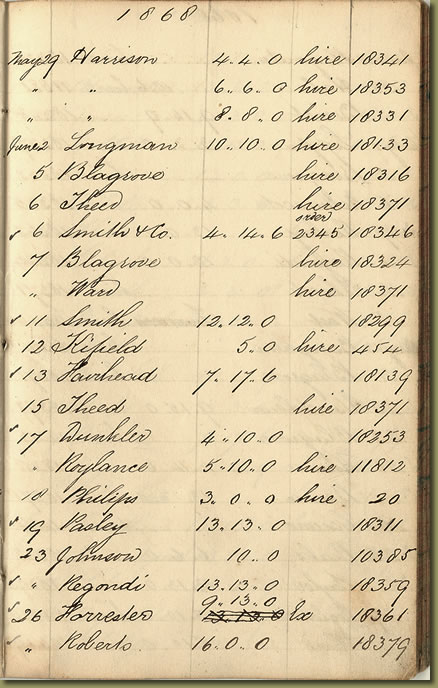 1868
May 29 Harrison 4..4..0 hire 18341
" " 6..6..0 hire 18353
" " 8..8..0 hire 18331
June 2 Longman 10..10..0 hire 18133
5 Blagrove hire 18316
6 Theed hire 18371
6 Smith & Co. 4..14..6 order 2345 18346
7 Blagrove hire 18324
" Ward hire 18371
11 Smith 12..12..0 18299
12 Fifield 5..0 hire 454
13 Fairhead 7..17..6 18139
15 Theed hire 18371
17 Dunkler 4..10..0 18253
" Roylance 5..10..0 hire 11812
18 Philips 3..0..0 hire 20
19 Pasley 13..13..0 18311
23 Johnson 10..0 10385
" Regondi 13..13..0 18359
26 Forrester 9..13..0 Ex 18361
" Roberts. 16..0..0 18379